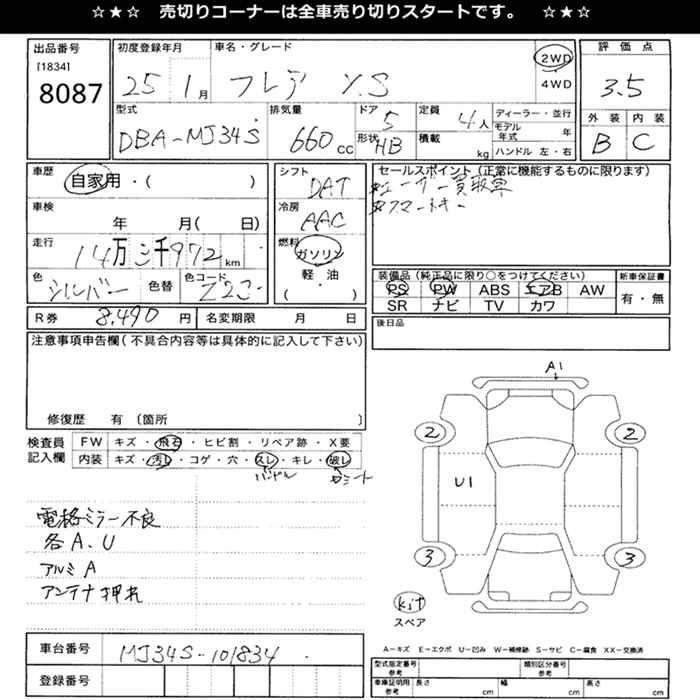 ☆★☆ 売切りコーナーは全車売り切りスタートです。 ☆★☆
出品番号
[1834]
8087
初度登録年月
25 1月
車名・グレード
フレア XS
2WD
4WD
評価点
3.5
外装 内装
B C
型式
DBA-MJ34S
排気量
660 cc
ドア 5
形状 HB
定員 4人
積載 kg
ディーラー・並行
モデル年式 年
ハンドル 左・右
車歴
自家用・( )
車検
年 月( 日)
走行
14万三千972 km
色
シルバー
色替
色コード
Z2S
シフト
DAT
冷房
AAC
燃料
ガソリン
軽・油
( ・ )
セールスポイント(正常に機能するものに限ります)
ユーザー買取車
スマートキー
装備品(純正品に限り○をつけてください)
PS PW ABS エアB AW
SR ナビ TV カワ
新車保証書
有・無
R券 8,490 円
名変期限 月 日
後日品
注意事項申告欄(不具合内容等は具体的に記入して下さい)
修復歴 有 〔箇所 〕
検査員
記入欄
FW キズ・飛石・ヒビ割・リペア跡・X要
内装 キズ・汚レ・コゲ・穴・スレ・キレ・破レ
ハンドル
シート
電格ミラー不良
各A、U
アルミA
アンテナ押れ
A1
2
2
U1
3
3
kit
スペア
A-キズ E-エクボ U-凹み W-補修跡 S-サビ C-腐食 XX-交換済
車台番号
MJ34S-101834
登録番号
型式指定番号
参考
類別区分番号
参考
車庫証明用
参考
長さ cm
幅 cm
高さ cm